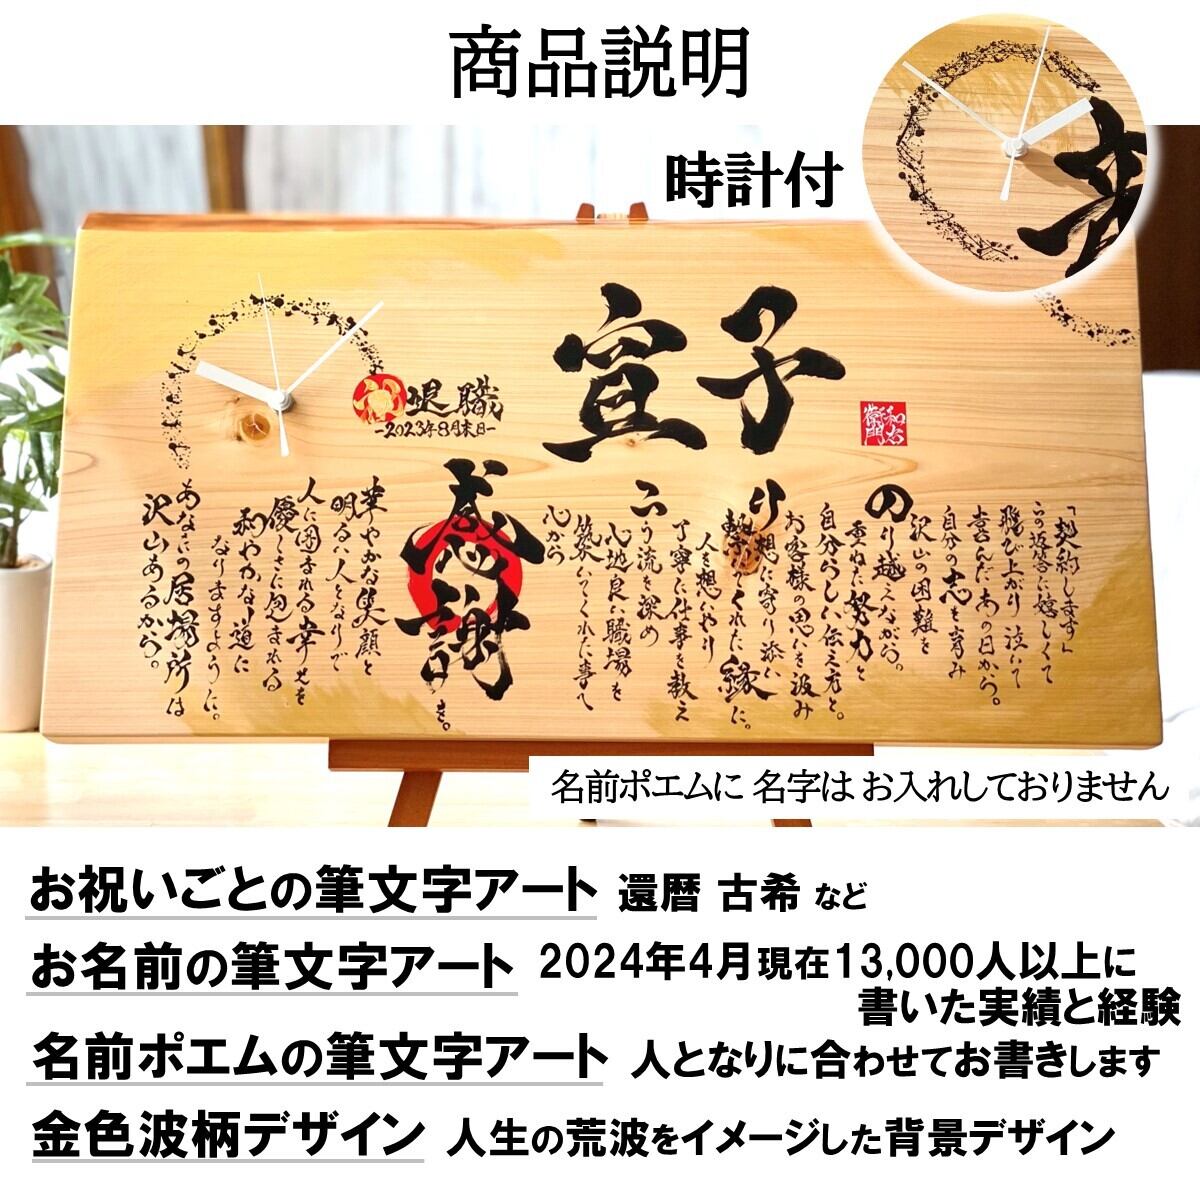 商品説明
時計付
宣子
祝 退職
-2023年8月末日-
和右衛門
「契約します」
この返答に嬉しくて
飛び上がり泣いて
喜んだあの日から。
自分の志を育み
沢山の困難を
のり越えながら。
重ねた努力と
自分らしい伝え方と。
お客様の思いを汲み
り想に寄り添い
繋がくれた縁に。
人を想いやり
丁寧に仕事を教え
こう流を深め
心地良い職場を
築いてくれた事へ
心から
感謝
を。
華やかな笑顔と
明るい人となりで
人に囲まれる幸せを
優しさに包まれる
和やかな道に
なりますように。
あなたの居場所は
沢山あるから。
名前ポエムに 名字は お入れしておりません
お祝いごとの筆文字アート 還暦 古希 など
お名前の筆文字アート 2024年4月現在13,000人以上に
書いた実績と経験
名前ポエムの筆文字アート 人となりに合わせてお書きします
金色波柄デザイン 人生の荒波をイメージした背景デザイン